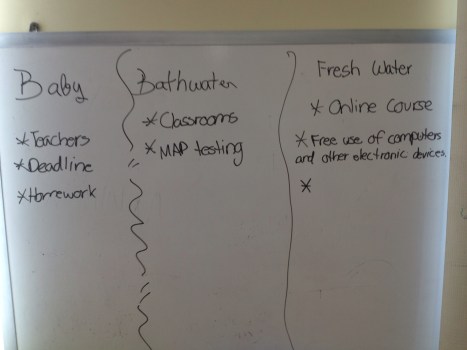 Baby
* Teachers
* Deadline
* Homework
Bathwater
* Classrooms
* MAP testing
Fresh Water
* Online Course
* Free use of computers
and other electronic devices.
*